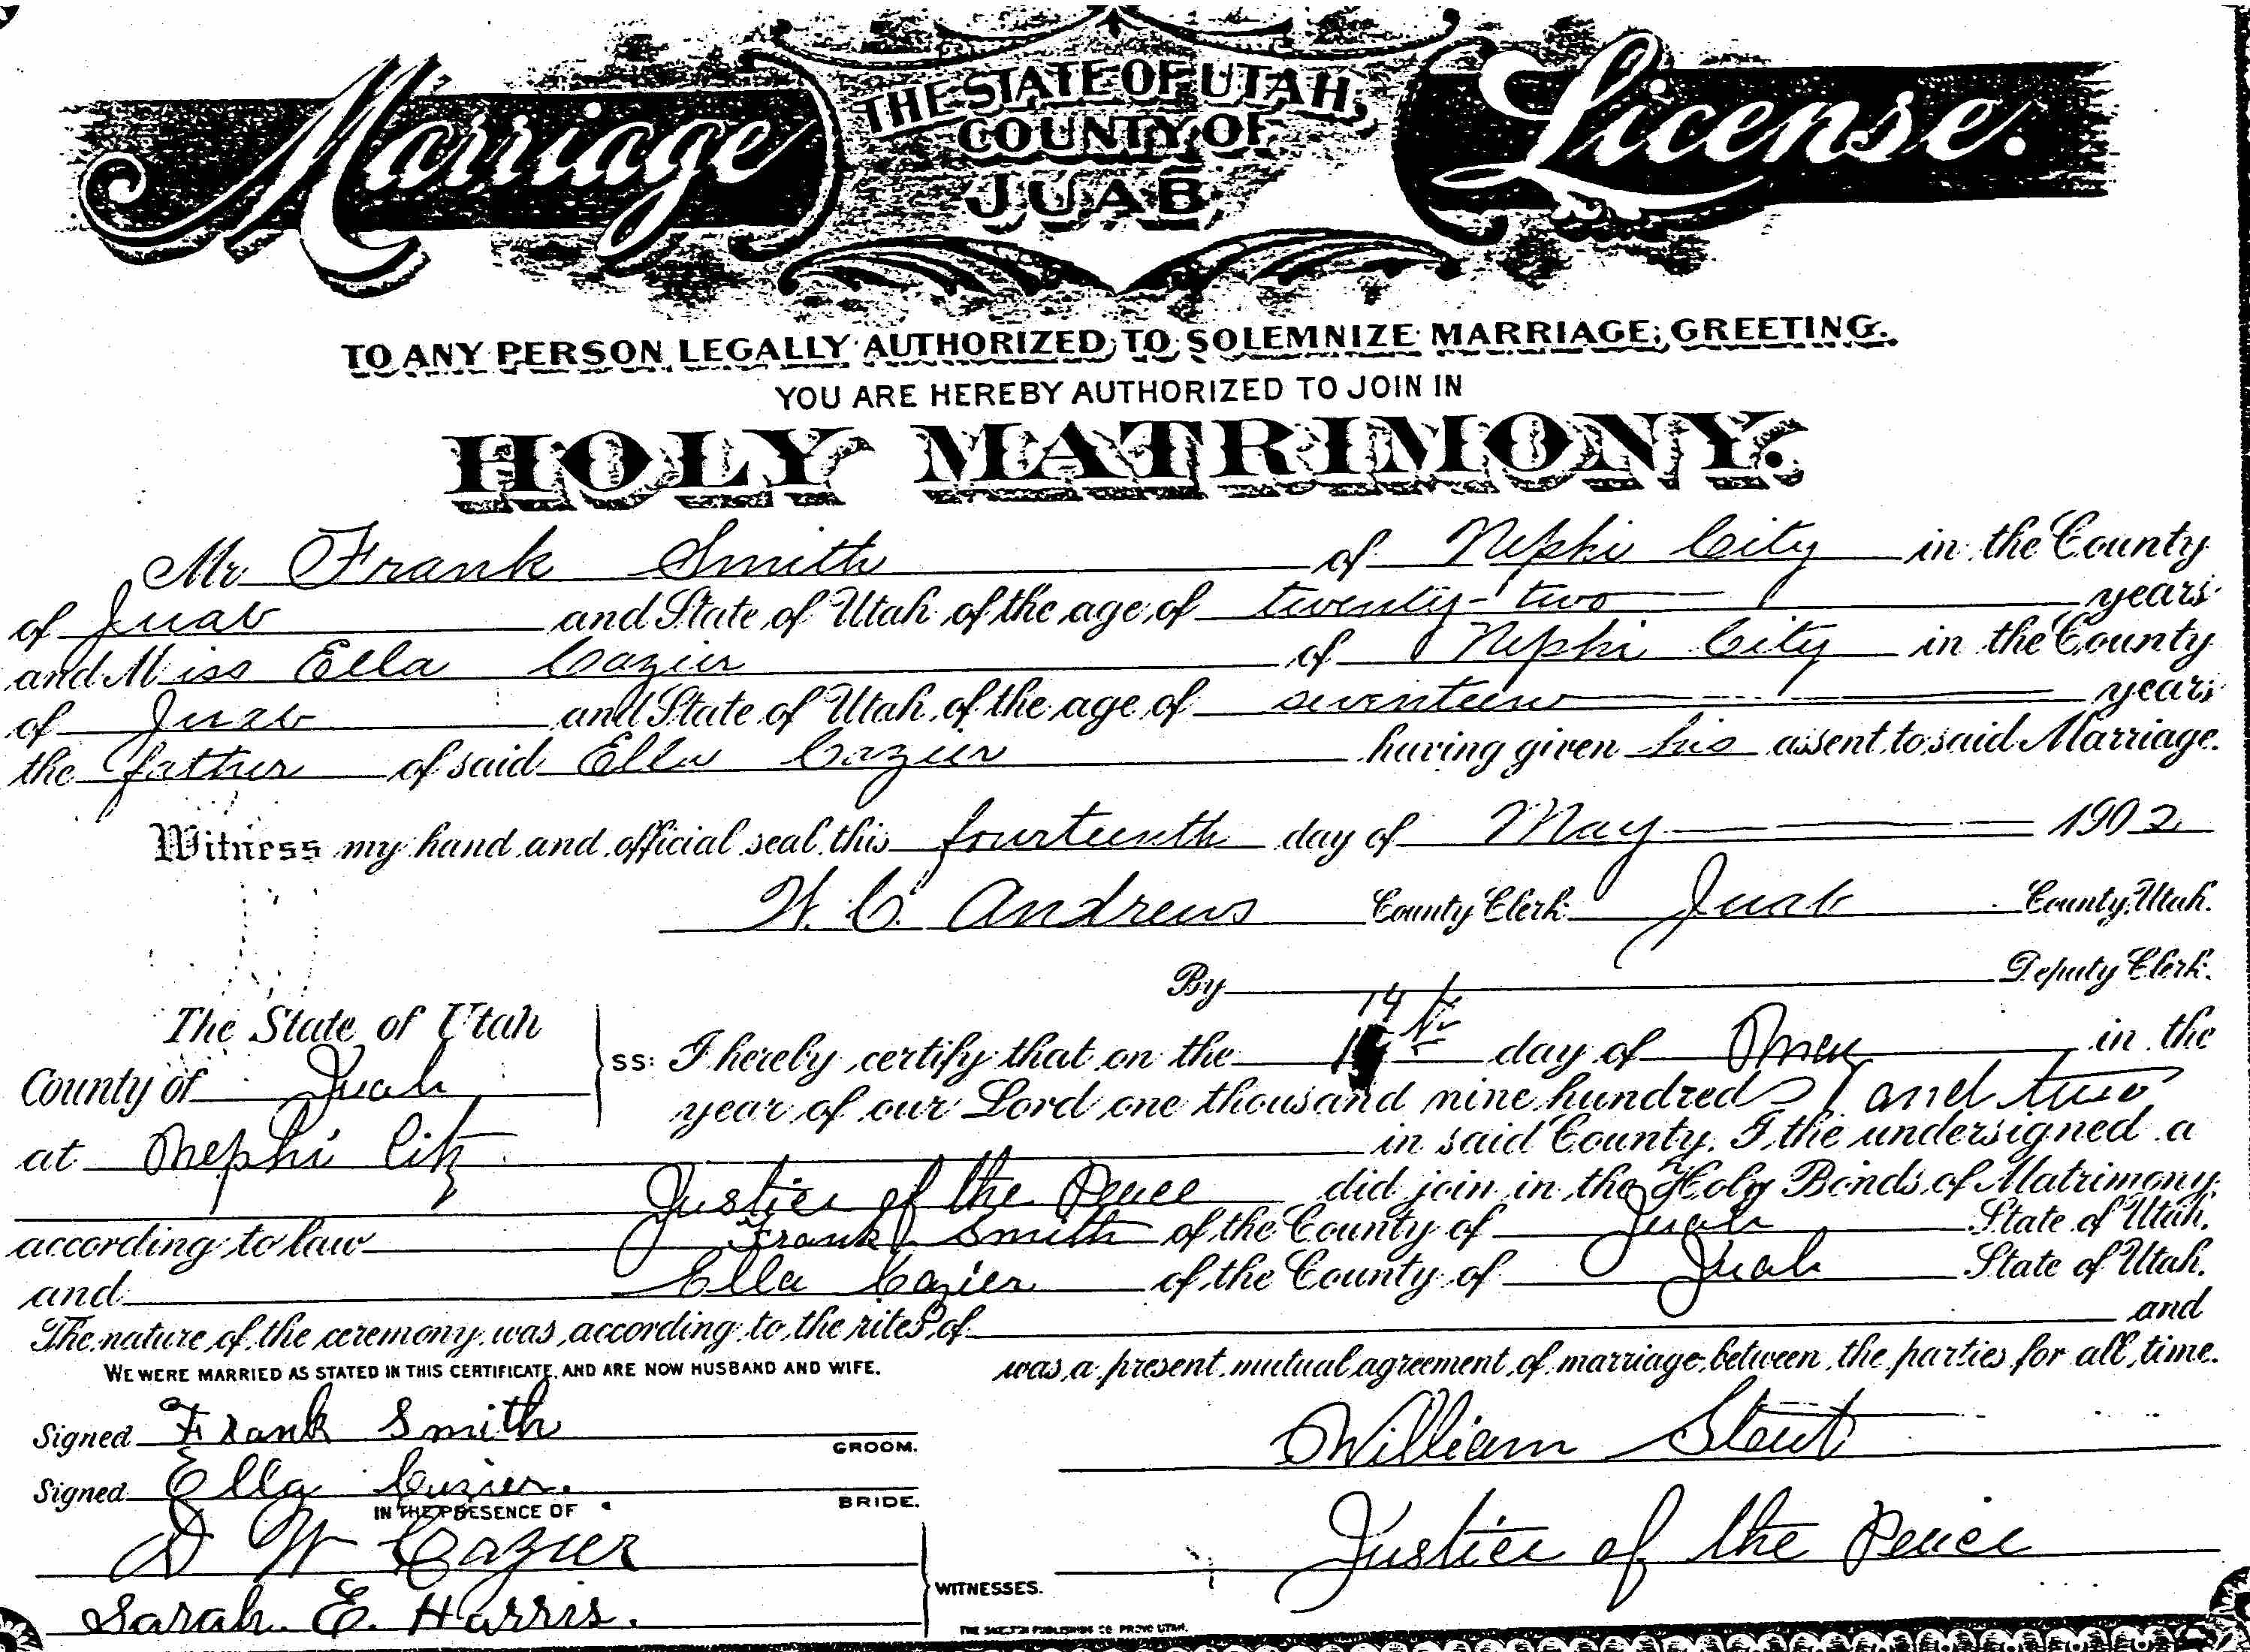 Marriage License.
THE STATE OF UTAH,
COUNTY OF
JUAB
TO ANY PERSON LEGALLY AUTHORIZED TO SOLEMNIZE MARRIAGE; GREETING.
YOU ARE HEREBY AUTHORIZED TO JOIN IN
HOLY MATRIMONY.
Mr Frank Smith of Nephi City in the County
of Juab and State of Utah of the age of twenty-two years
and Miss Ella Cazier of Nephi City in the County
of Juab and State of Utah, of the age of seventeen years
the father of said Ella Cazier having given his assent to said Marriage.
Witness my hand and official seal this fourteenth day of May 1902
W. C. Andrews County Clerk Juab County, Utah.
By Deputy Clerk.
14th
The State of Utah
County of Juab ss: I hereby certify that on the day of May in the
year of our Lord one thousand nine hundred and two
at Nephi City in said County, I, the undersigned a
Justice of the Peace did join in the Holy Bonds of Matrimony
according to law Frank Smith of the County of Juab State of Utah.
and Ella Cazier of the County of Juab State of Utah.
The nature of the ceremony was according to the rites of and
was a present mutual agreement of marriage between the parties for all time.
WE WERE MARRIED AS STATED IN THIS CERTIFICATE, AND ARE NOW HUSBAND AND WIFE.
Signed Frank Smith GROOM.
Signed Ella Cazier. BRIDE.
IN THE PRESENCE OF
D W Cazier
Sarah E. Harris.
WITNESSES.
William Stout
Justice of the Peace
PUBLISHING CO PROVO UTAH.